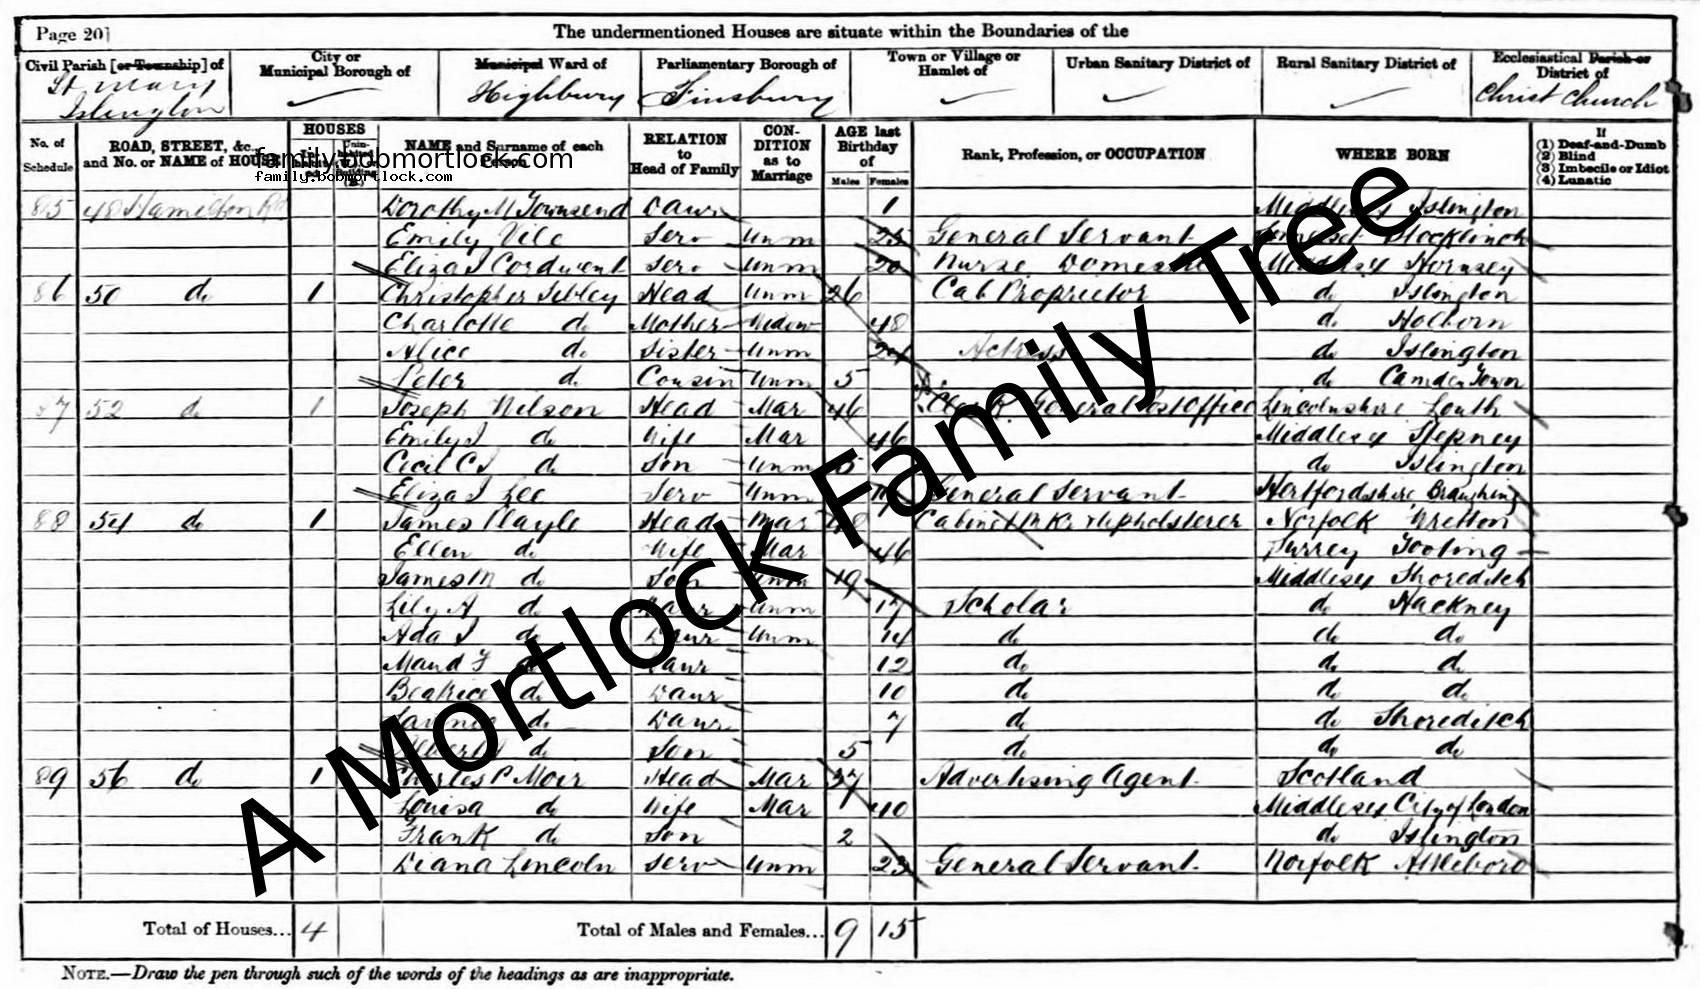 Page 20]
The undermentioned Houses are situate within the Boundaries of the
Civil Parish [or Township] of
City or Municipal Borough of
Municipal Ward of
Parliamentary Borough of
Town or Village or Hamlet of
Urban Sanitary District of
Rural Sanitary District of
Ecclesiastical Parish or District of
St. Mary Islington
Highbury
Finsbury
Christ Church
No. of Schedule
ROAD, STREET, &c., and No. or NAME of HOUSE
HOUSES
NAME and Surname of each Person
RELATION to Head of Family
CONDITION as to Marriage
AGE last Birthday of
Males
Females
Rank, Profession, or OCCUPATION
WHERE BORN
If
(1) Deaf-and-Dumb
(2) Blind
(3) Imbecile or Idiot
(4) Lunatic
family.bobmortlock.com
family.bobmortlock.com
85 48 Hamilton Rd Dorothy M Townsend Daur 1 Middlesex Islington
Emily Vile Serv Unm 25 General Servant Somerset Stocklinch
Eliza J Cordwent Serv Unm 20 Nurse Domestic Middlesex Hornsey
86 50 do 1 Christopher Sibley Head Unm 26 Cab Proprietor do Islington
Charlotte do Mother Widow 48 do Holborn
Alice do Sister Unm 21 Actress do Islington
Peter do Cousin Unm 5 do Camden Town
87 52 do 1 Joseph Wilson Head Mar 46 Clerk General Post Office Lincolnshire Louth
Emily J do Wife Mar 46 Middlesex Stepney
Cecil C J do Son Unm 5 do Islington
Eliza J Lee Serv Unm General Servant Hertfordshire Braughing
88 54 do 1 James Playle Head Mar 48 Cabinet Mkr Upholsterer Norfolk Wretton
Ellen do Wife Mar 46 Surrey Tooting
James M do Son Unm 19 Middlesex Shoreditch
Lily A do Daur Unm 17 Scholar do Hackney
Ada J do Daur Unm 14 do do do
Maud F do Daur 12 do do do
Beatrice do Daur 10 do do do
do Daur 7 do do Shoreditch
Albert do Son 5 do do do
89 56 do 1 Charles P Moir Head Mar 37 Advertising Agent Scotland
Louisa do Wife Mar 40 Middlesex City of London
Frank do Son 2 do Islington
Diana Lincoln Serv Unm 23 General Servant Norfolk Attleboro
Total of Houses... 4
Total of Males and Females... 9 15
NOTE.—Draw the pen through such of the words of the headings as are inappropriate.
A Mortlock Family Tree